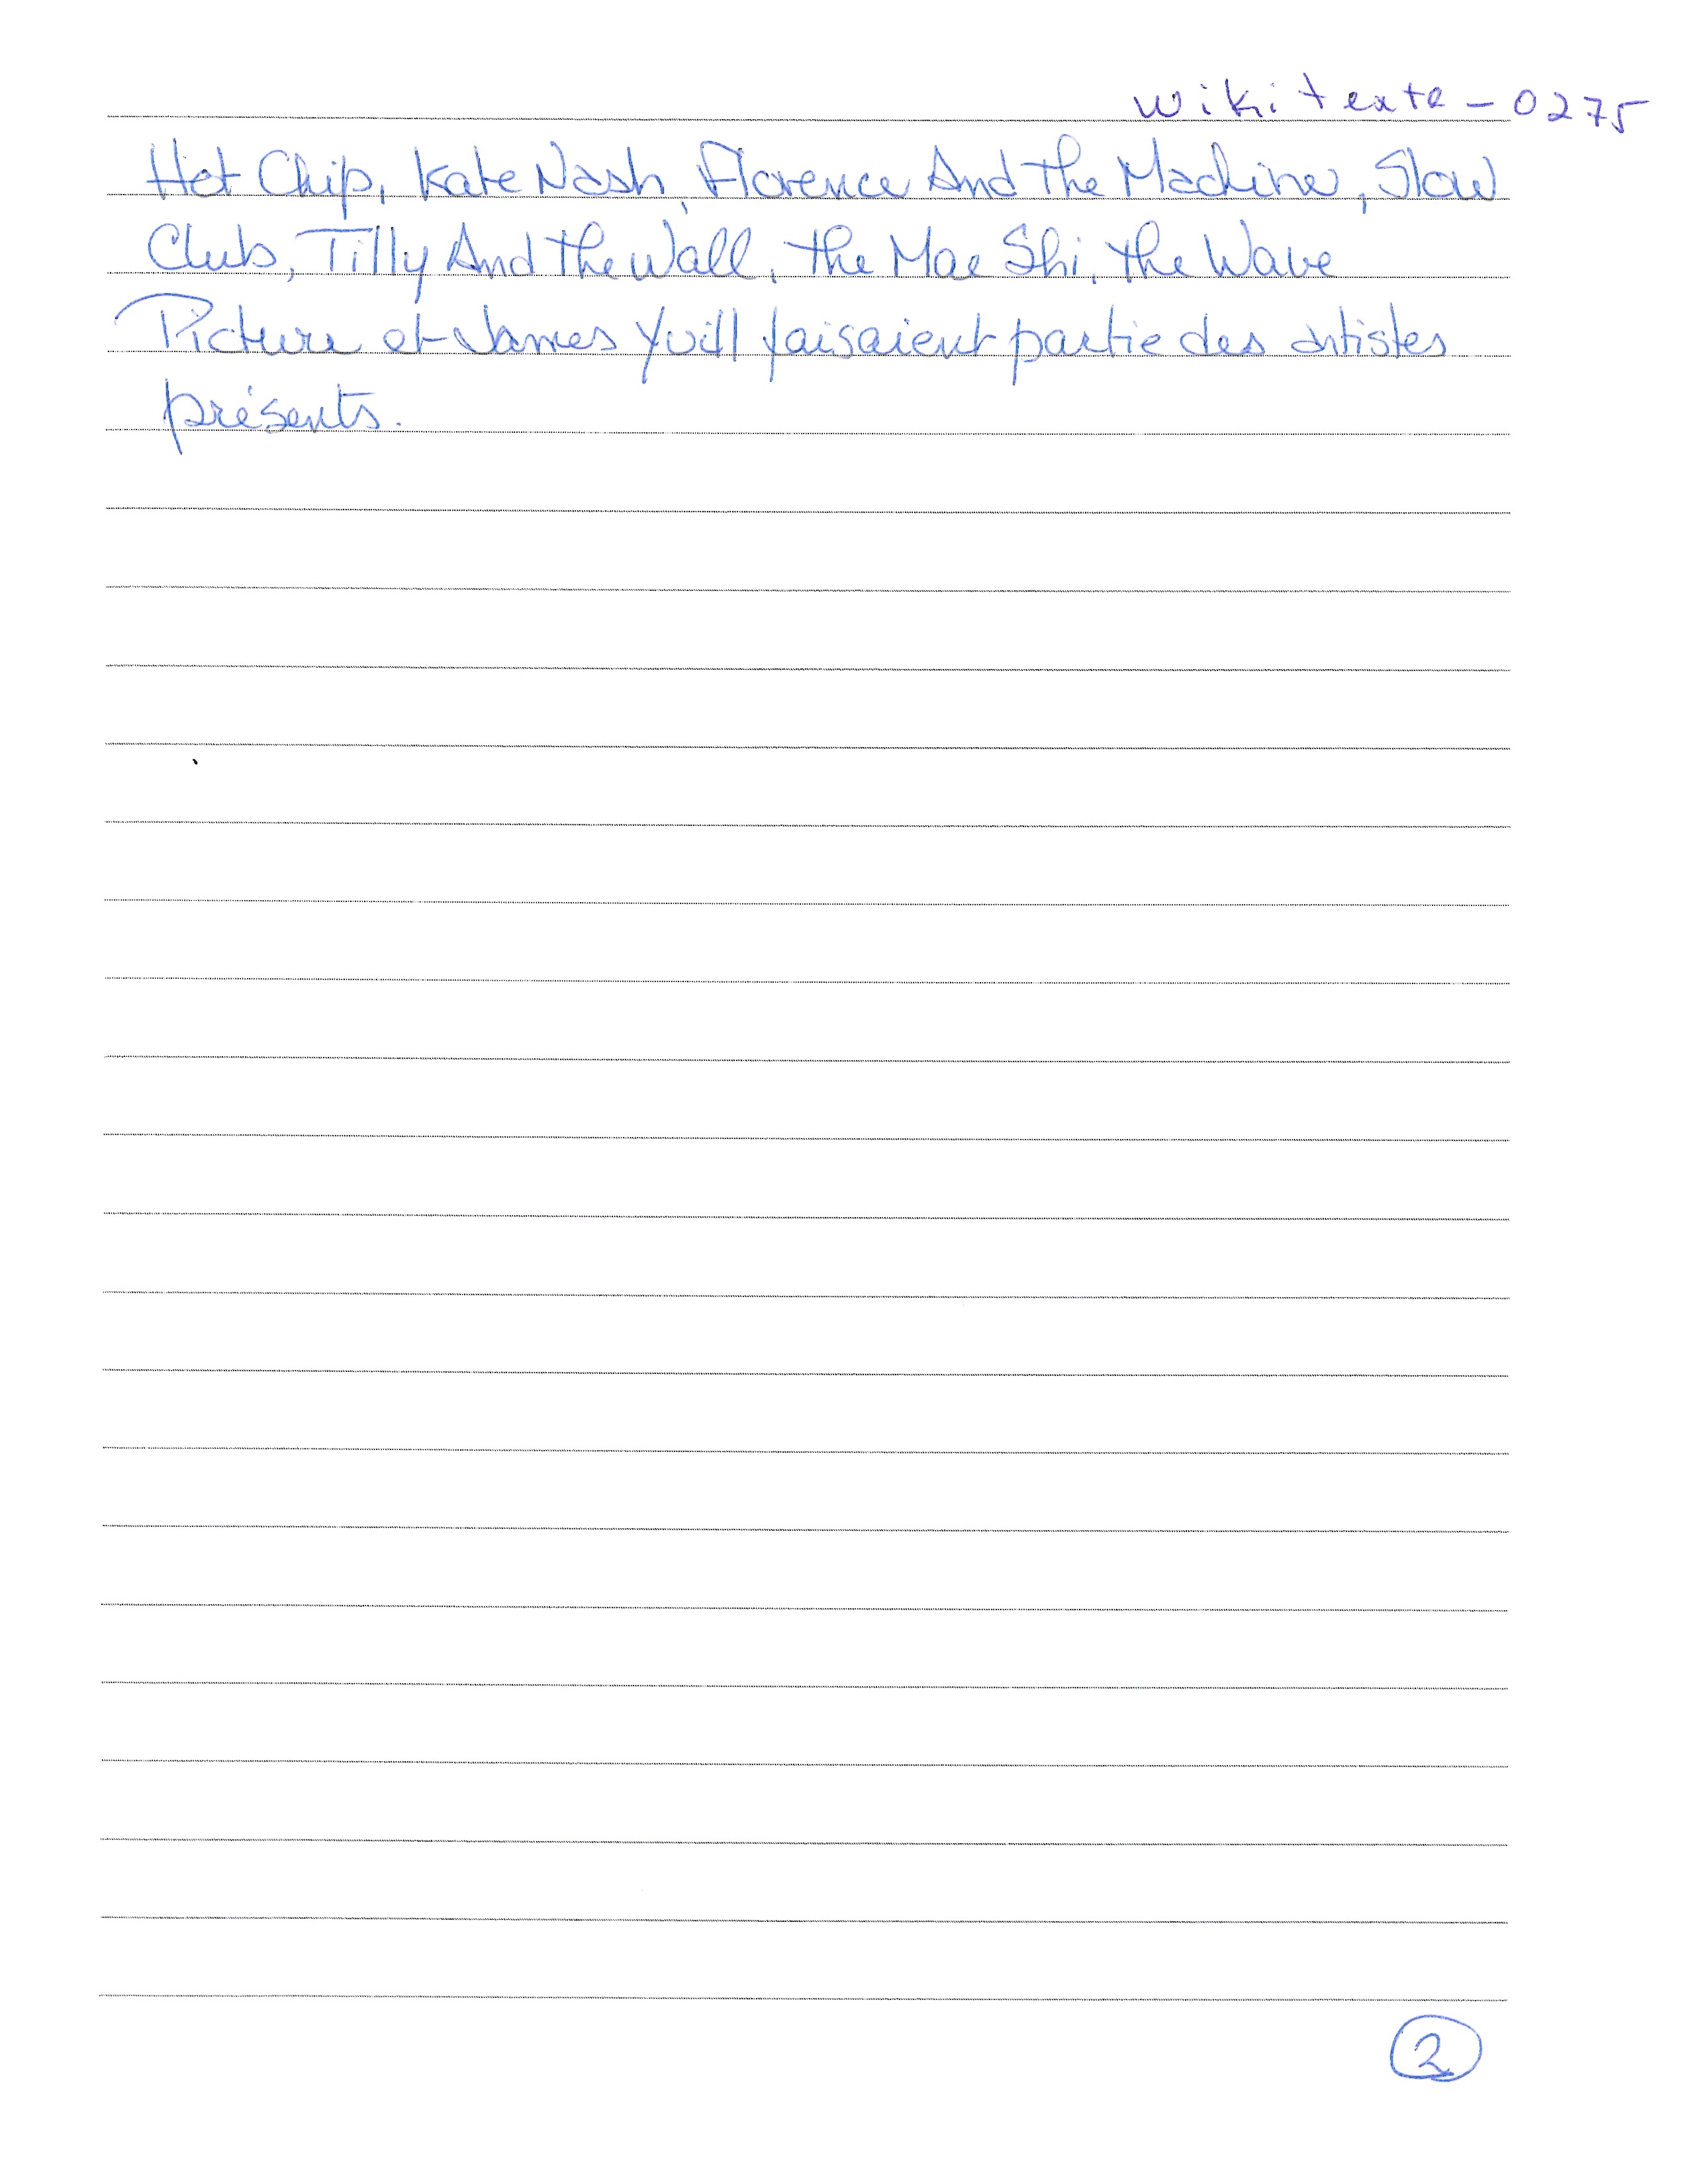 wikitexte - 0275
Hot Chip, Kate Nash, Florence And The Machine, Slow
Club, Tilly And The Wall, The Mae Shi, The Wave
Picture et James Yuill faisaient partie des artistes
présents.
2